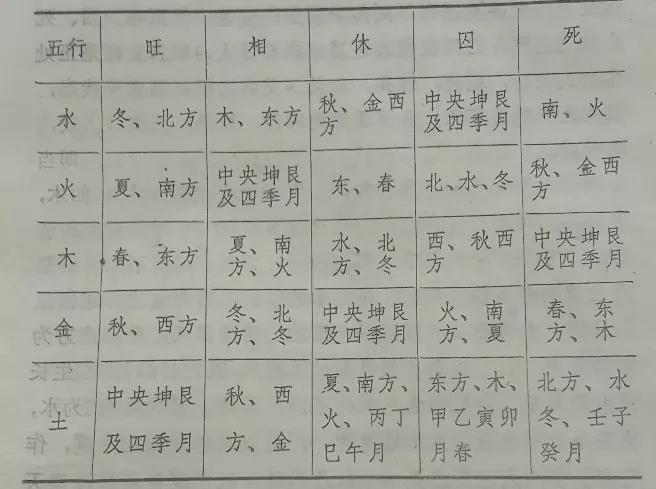 五行 旺 相 休 囚 死
水 冬、北方 木、东方 秋、金西方 中央坤艮及四季月 南、火
火 夏、南方 中央坤艮及四季月 东、春 北、水、冬 秋、金西方
木 春、东方 夏、南方、火 水、北方、冬 西、秋西方 中央坤艮及四季月
金 秋、西方 冬、北方、冬 中央坤艮及四季月 火、南方、夏 春、东方、木
土 中央坤艮及四季月 秋、西方、金 夏、南方、火、丙丁巳午月 东方、木、甲乙寅卯月春 北方、水冬、壬子癸月